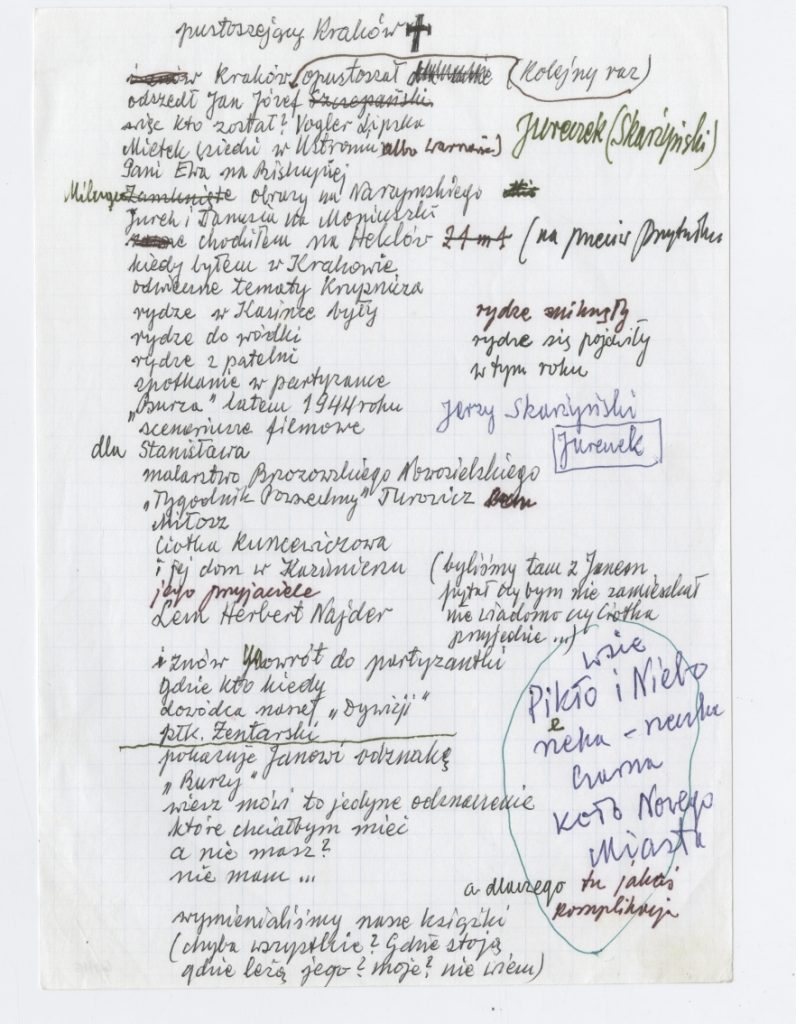 pustoszejący Kraków
w Kraków opustoszał (kolejny raz)
odszedł Jan Józef Szczepański
więc kto został? Vogler Lipska
Mietek siedzi w Ustroniu albo Warszawie)
Jureczek (Skarżyński)
Pani Ewa na Biskupiej
Milczące Zamknięte obrazy na Narzymskiego
Jurek i Danusia na Moniuszki
chodziłem na Heklów 21 m 1 (na przeciw Przytułku
kiedy byłem w Krakowie
odwieczne tematy Krupnicza
rydze w Kasince były
rydze zniknęły
rydze do wódki
rydze się pojawiły
rydze z patelni
w tym roku
spotkanie w partyzance
„Burza" latem 1944 roku
Jerzy Skarżyński
scenariusze filmowe
Jurenek
dla Stanisława
malarstwo Brzozowskiego Nowosielskiego
„Tygodnik Powszechny" Turowicz
Miłosz
Ciotka Kuncewiczowa
i jej dom w Kazimierzu (byliśmy tam z Janem
jego przyjaciele
pytał czy bym nie zamieszkał
Lem Herbert Najder
nie wiadomo czy Ciotka
przyjedzie ...)
i znów powrót do partyzantki
gdzie kto kiedy
dowódca naszej „Dywizji"
płk. Zentarski
pokazuje Janowi odznakę
„Burzy"
wiesz mówi to jedyne odznaczenie
które chciałbym mieć
a nie masz?
nie mam ...
wsie
Pikło i Niebo
rzeka – rzeczka
Czarna
koło Nowego
Miasta
a dlaczego tu jakaś
komplikacja
wymienialiśmy nasze książki
(chyba wszystkie? Gdzie stoją
gdzie leżą jego? moje? nie wiem)